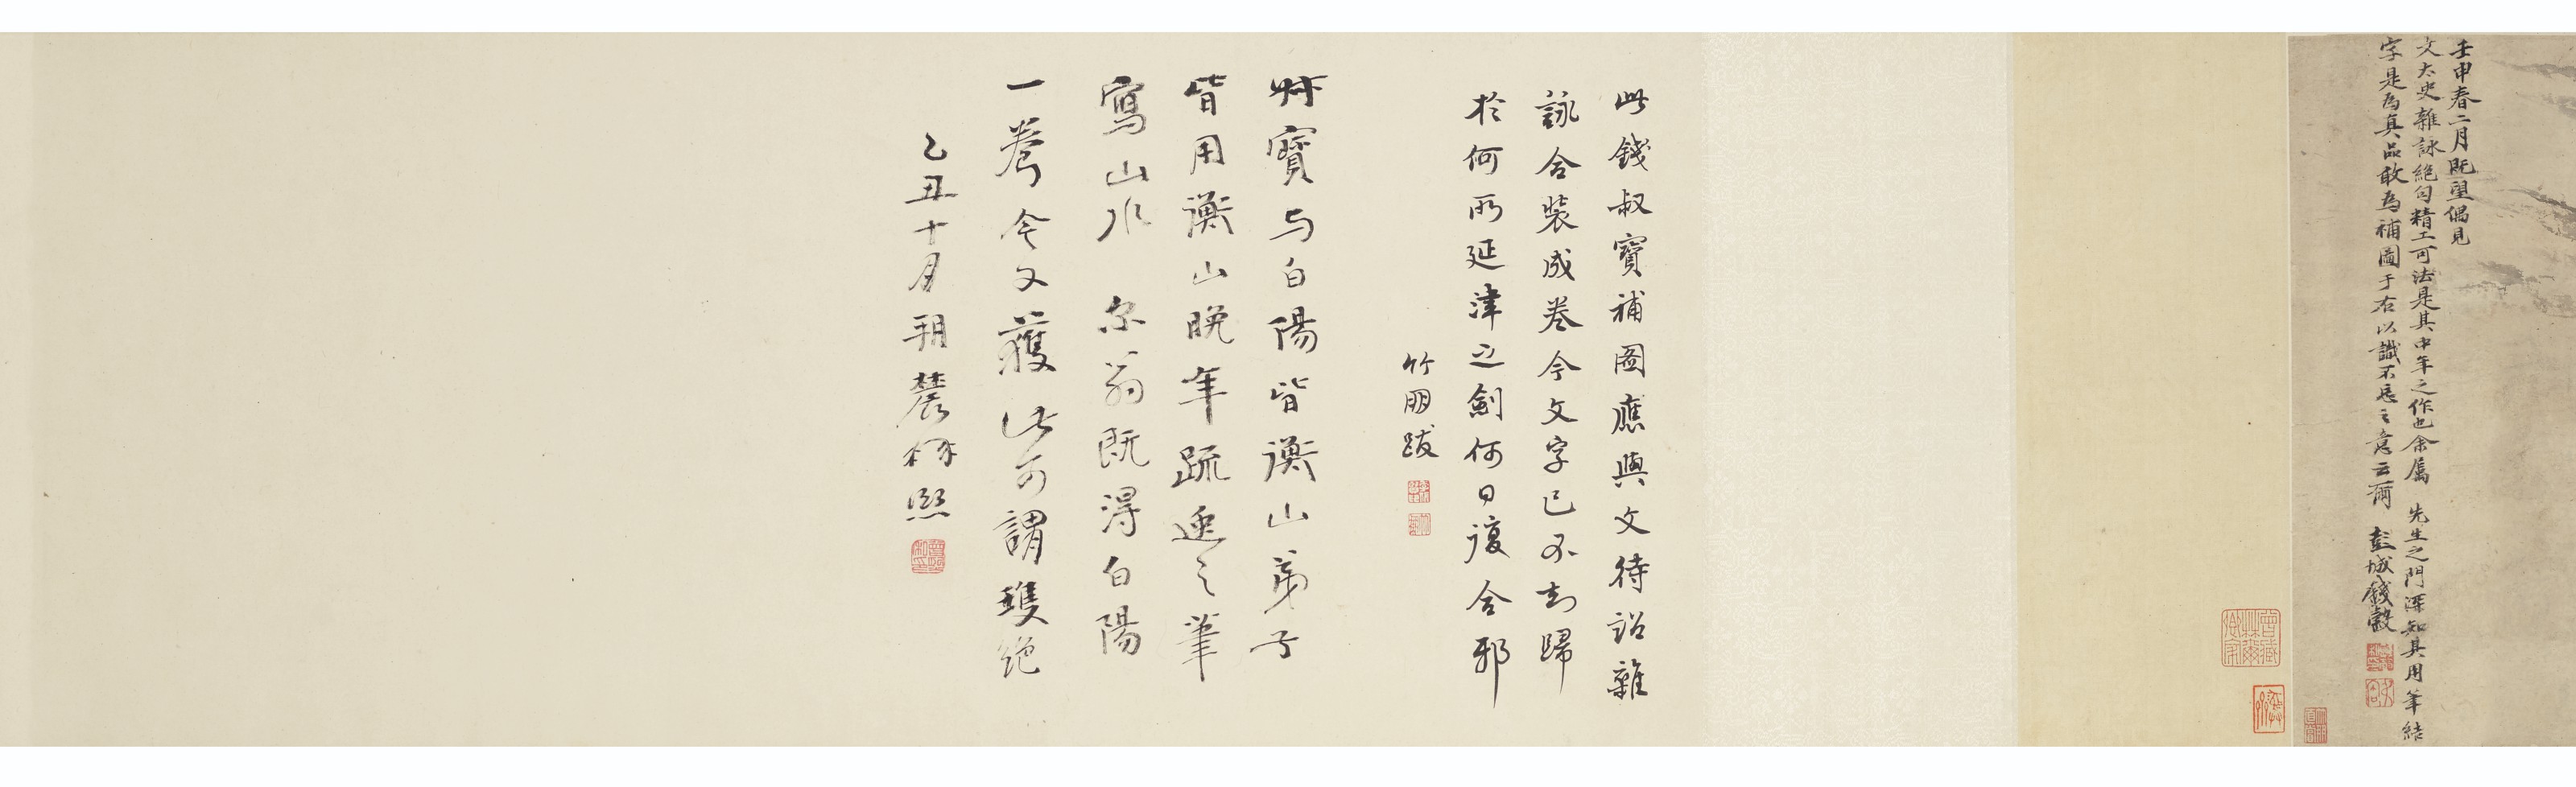 壬申春二月既望偶見
文太史雜詠絕句精工可法是其中年之作也余屬 先生之門深知其用筆結
字是為真品敢為補圖于右以識不忘之意云爾 彭城錢穀
此錢叔寶補圖應與文待詔雜
詠合裝成卷今文字已不知歸
於何所延津之劍何日復合邪
竹朋跋
叔寶与白陽皆衡山弟子
皆用衡山晚年疏逸之筆
寫山水 尔翁既淂白陽
一卷今又獲此可謂雙絕
乙丑十月朔農髯熙